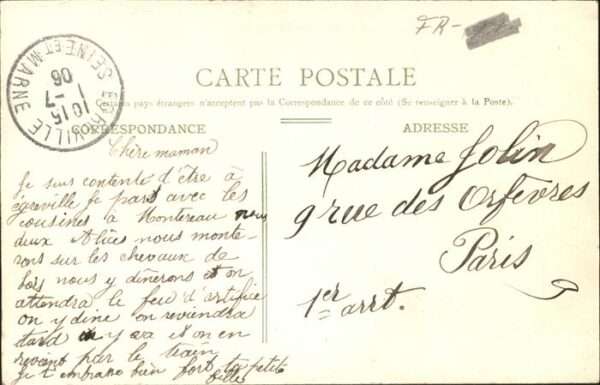 FR-
CARTE POSTALE
Certains pays étrangers n'acceptent pas la Correspondance de ce côté (Se renseigner à la Poste).
CORRESPONDANCE
ADRESSE
EGREVILLE
SEINE ET MARNE
10 15
1 -7
06
Chère maman
Je suis contente d'être à
égreville je pars avec les
cousines à Montereau nous
deux Alice nous monte-
rons sur les chevaux de
bois nous y dînerons et on
attendra le feu d'artifice
on y dîne on reviendra
tard y va et on en
revient par le train
Je t'embrasse bien fort ta petite
fille
Madame Jolin
9 rue des Orfèvres
Paris
1er arrt.